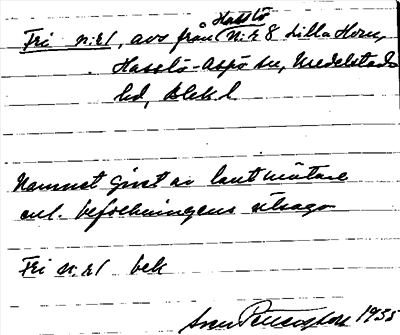 Hasslö
Fri n:r 1, avs från n:r 8 Lilla Horn,
Hasslö-Aspö sn, Medelstads
hd, Blek l.
Namnet givet av lantmätare
enl. befolkningens utsago
Fri n:r 1 bek
Sven 1935